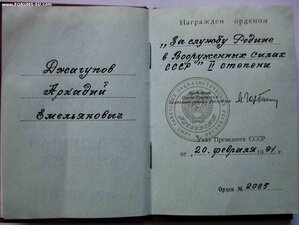 www.FORUMS-SU.com
Джагупов
Аркадий
Емельянович
Награжден орденом
„За службу Родине
в Вооруженных силах
СССР" II степени
Указ Президента СССР
от 20. февраля 1991 г.
Орден № 2085